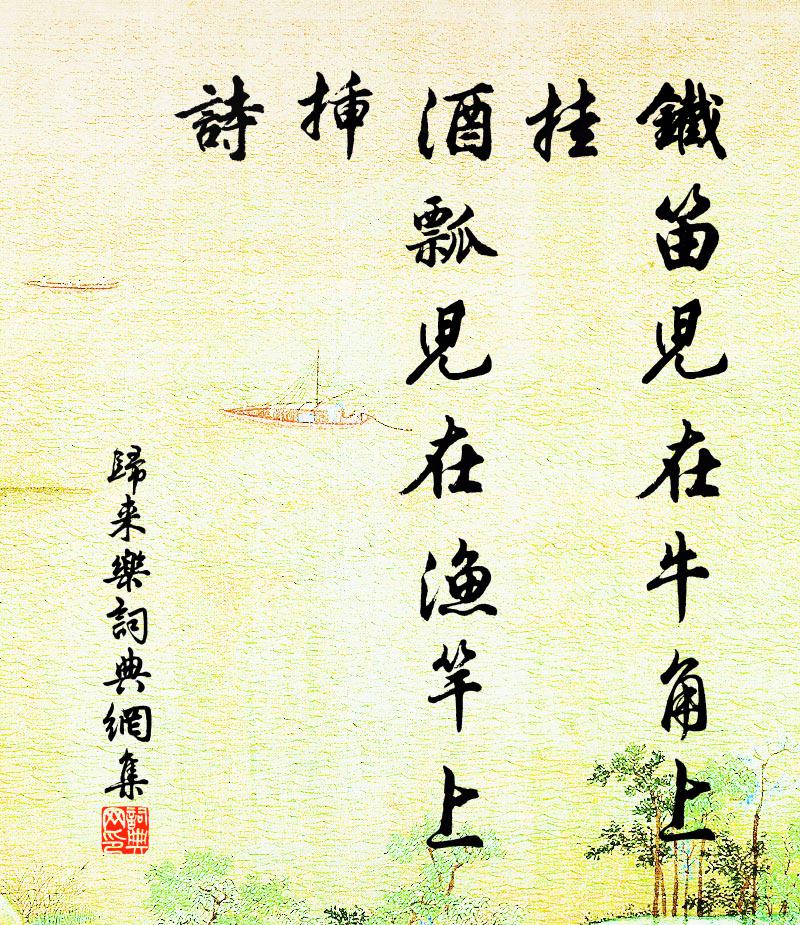 鐵笛児在牛角上
挂
酒瓢児在漁竿上
挿
詩
歸来樂詞典網集
詞典
网印